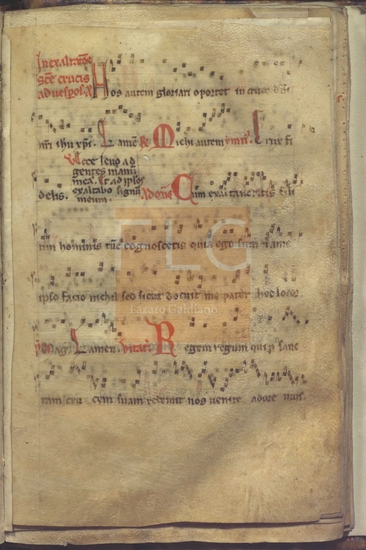 In exaltatione
sce crucis
ad uesp̃os. a Nos autem gloriari oportet in cruce dñi
nr̃i ihu xp̃i. Michi autem ymn⁹. Crux fi
Ecce leuo ad
gentes manũ
mea. et ad ipsos
exaltabo signũ
meum.
delis. Cum exaltaueritis fili
um hominis tunc cognoscetis quia ego sum
ipso facio nichil sed sicut docuit me pater hec loqor
Regem regum qui p̃ sanc
tam cru cem suam redemit nos uenite adore mus
FLG
Lázaro Galdiano